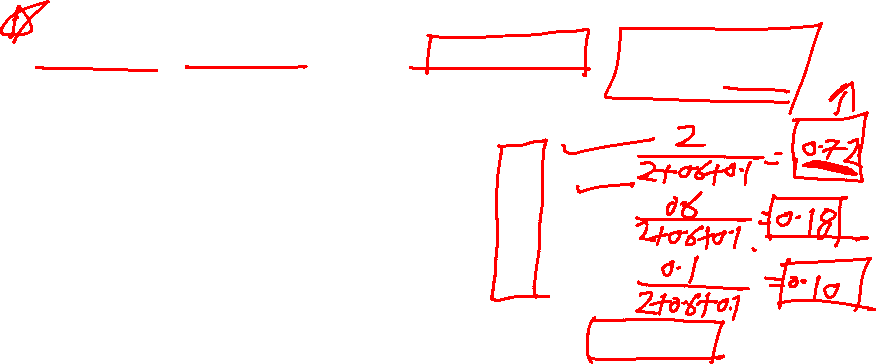 2/(2+0.6+0.1) = 0.72
0.6/(2+0.6+0.1) = 0.18
0.1/(2+0.6+0.1) = 0.10